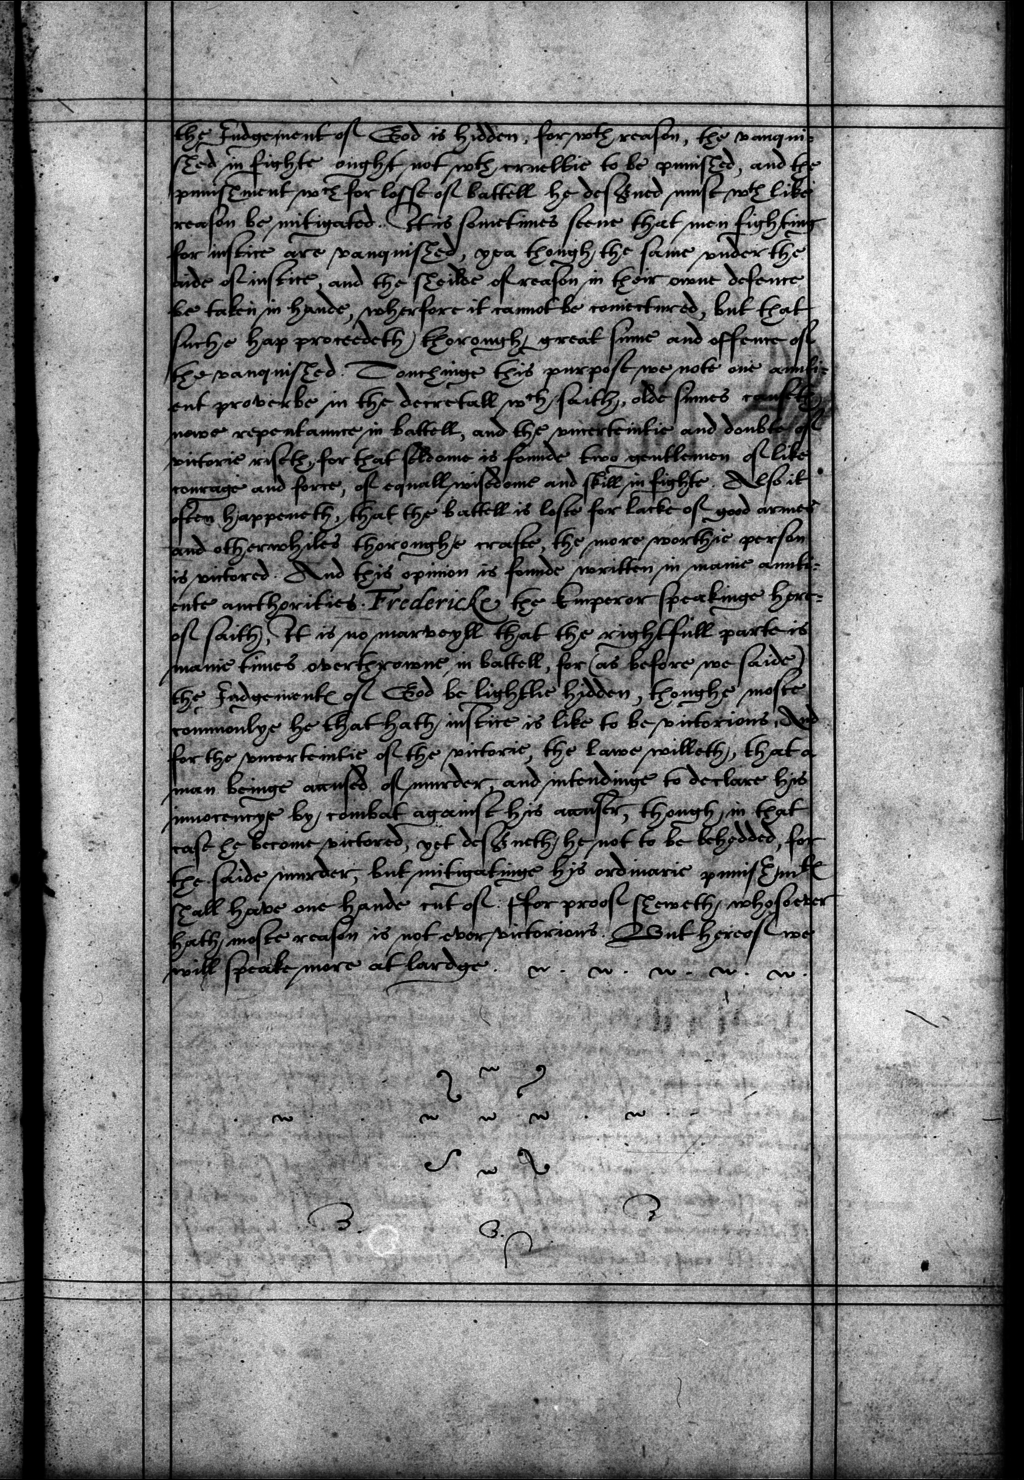 the Judgement of God is hidden, for wth reason, the vanqui-
shed in fighte ought not wth crueltie to be punished, and the
punishment wch for losse of battell he deserved must wth like
reason be mitigated. It is sometimes seene that men fighting
for iustice are vanquished, yea though the same under the
aide of iustice, and the sheilde of reason in their owne defence
be taken in hande, wherfore it cannot be coniectured, but that
suche hap proceedeth thorough great sinne and offence of
the vanquished. Touchinge this purpose we note one aunti-
ent proverbe in the decretall wch saith, olde sinnes causeth
newe repentaunce in battell, and the uncerteintie and doubte of
victorie riseth, for that seldome is founde two gentlemen of like
courage and force, of equall wisedome and skill in fighte. Also it
often happeneth, that the battell is loste for lacke of good armes
and otherwhiles thoroughe crafte, the more worthie person
is victored. And this opinion is founde written in manie aunti-
ente aucthorities. Fredericke the Emperor speakinge here-
of saith, It is no marveyll that the rightfull parte is
manie times overthrowne in battell, for (as before we saide)
the Judgementes of God be lightlie hidden, thoughe moste
commonlye he that hath iustice is like to be victorious, And
for the uncerteintie of the victorie, the lawe willeth, that a
man beinge accused of murder, and intendinge to declare his
innocencye by combat against his accuser, though in that
case he become victored, yet deserveth he not to be behedded, for
the saide murder, but mitigatinge his ordinarie punishmt
shall have one hande cut of. ffor proof sheweth, whosoever
hath moste reason is not ever victorious. But hereof we
will speake more at lardge.